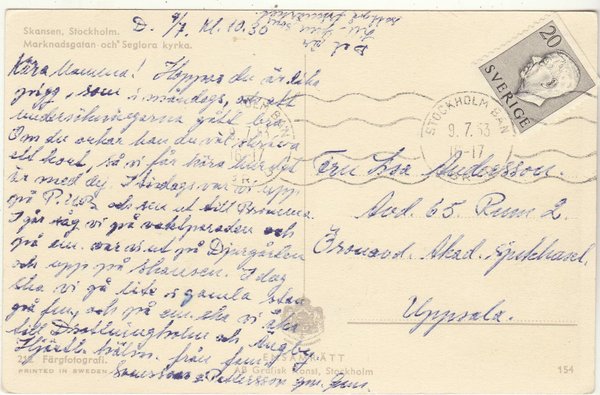 Skansen, Stockholm.
Marknadsgatan och Seglora kyrka.
D. 9/7. kl. 10.30
Kära Mamma! Hoppas du är lika
pigg, som i måndags, och att
undersökningarna gått bra.
Om du orkar kan du väl skriva
ett kort, så vi får höra hur det
är med dej. I tisdags var vi upp
på P.U.B. och sen ut till Bromma.
I går såg vi på vaktparaden och
på em. var vi ut på Djurgården
och upp på Skansen. I dag
ska vi gå lite i gamla stan
på fm, och på em. ska vi åka
till Drottningholm och Ängby
Hjärtl. häln. från
Pettersson
Fru Andersson.
Avd. 65. Rum 2.
Akad. Sjukhuset.
Uppsala.
SVERIGE
20
STOCKHOLM BAN
9.7.53
16-17
ENSAMRÄTT
AB Grafisk Konst, Stockholm
212 Färgfotografi.
PRINTED IN SWEDEN
154